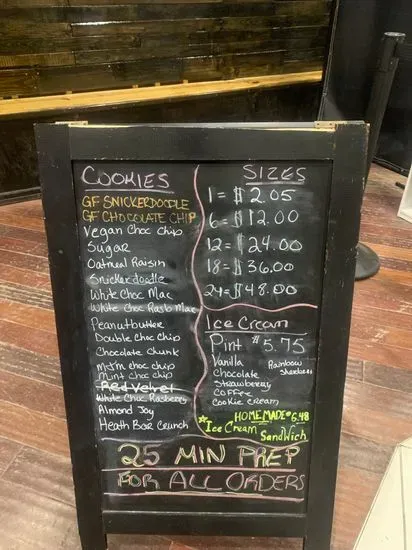 COOKIES
GF SNICKERDOODLE
GF CHOCOLATE CHIP
Vegan Choc chip
Sugar
Oatmeal Raisin
Snickerdoodle
White Choc Mac
White Choc Rasb Mac
Peanutbutter
Double Choc chip
Chocolate Chunk
M&M choc chip
Mint choc chip
Red Velvet
White Choc Rasberry
Almond Joy
Heath Bar Crunch
SIZES
1 = $2.05
6 = $12.00
12 = $24.00
18 = $36.00
24 = $48.00
Ice Cream
Pint $5.75
Vanilla
Chocolate
Strawberry
COFFEE
Cookie Cream
Rainbow
Sherbees
HOMEMADE $6.48
Ice Cream
Sandwich
25 MIN PREP
FOR ALL ORDERS